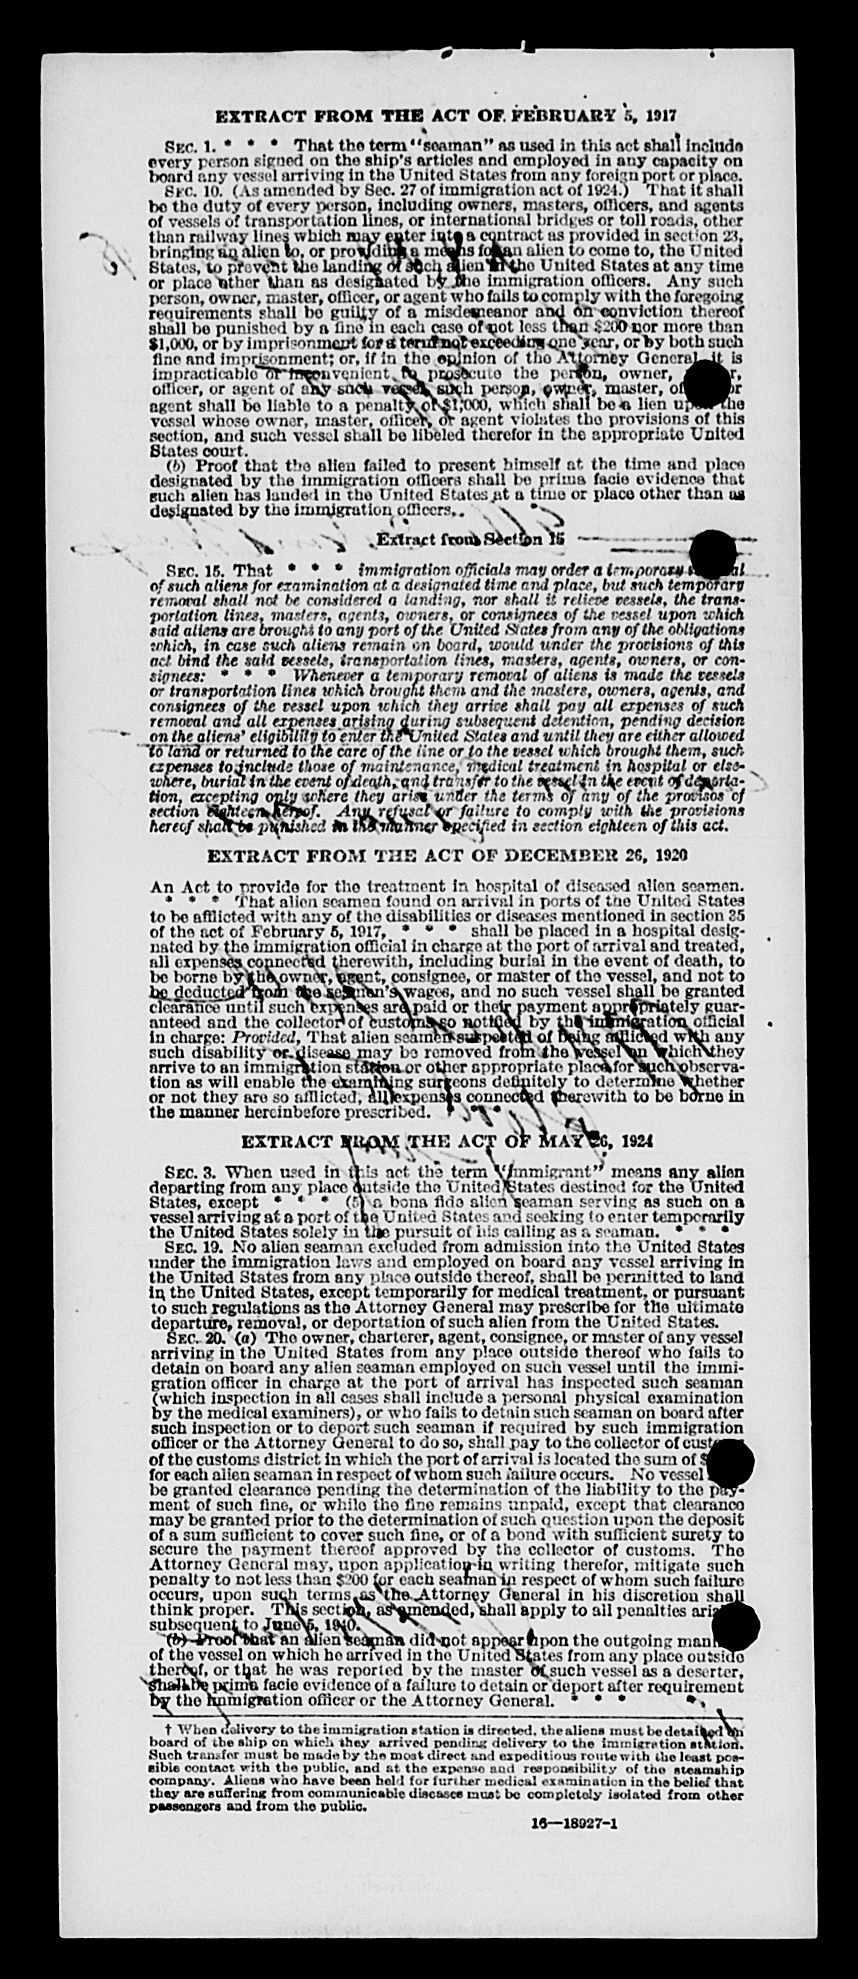 EXTRACT FROM THE ACT OF FEBRUARY 5, 1917
SEC. 1. * * * That the term "seaman" as used in this act shall include
every person signed on the ship's articles and employed in any capacity on
board any vessel arriving in the United States from any foreign port or place.
SEC. 10. (As amended by Sec. 27 of immigration act of 1924.) That it shall
be the duty of every person, including owners, masters, officers, and agents
of vessels of transportation lines, or international bridges or toll roads, other
than railway lines which may enter into a contract as provided in section 23,
bringing an alien to, or providing a means for an alien to come to, the United
States, to prevent the landing of such alien in the United States at any time
or place other than as designated by the immigration officers. Any such
person, owner, master, officer, or agent who fails to comply with the foregoing
requirements shall be guilty of a misdemeanor and on conviction thereof
shall be punished by a fine in each case of not less than $200 nor more than
$1,000, or by imprisonment for a term not exceeding one year, or by both such
fine and imprisonment; or, if in the opinion of the Attorney General it is
impracticable or inconvenient to prosecute the person, owner, r,
officer, or agent of any such vessel, such person, owner, master, of r
agent shall be liable to a penalty of $1,000, which shall be a lien upon the
vessel whose owner, master, officer, or agent violates the provisions of this
section, and such vessel shall be libeled therefor in the appropriate United
States court.
(b) Proof that the alien failed to present himself at the time and place
designated by the immigration officers shall be prima facie evidence that
such alien has landed in the United States at a time or place other than as
designated by the immigration officers.
Extract from Section 15
SEC. 15. That * * * immigration officials may order a temporary al
of such aliens for examination at a designated time and place, but such temporary
removal shall not be considered a landing, nor shall it relieve vessels, the trans-
portation lines, masters, agents, owners, or consignees of the vessel upon which
said aliens are brought to any port of the United States from any of the obligations
which, in case such aliens remain on board, would under the provisions of this
act bind the said vessels, transportation lines, masters, agents, owners, or con-
signees: * * * Whenever a temporary removal of aliens is made the vessels
or transportation lines which brought them and the masters, owners, agents, and
consignees of the vessel upon which they arrive shall pay all expenses of such
removal and all expenses arising during subsequent detention, pending decision
on the aliens' eligibility to enter the United States and until they are either allowed
to land or returned to the care of the line or to the vessel which brought them, such
expenses to include those of maintenance, medical treatment in hospital or else-
where, burial in the event of death, and transfer to the vessel in the event of deporta-
tion, excepting only where they arise under the terms of any of the provisos of
section eighteen hereof. Any refusal or failure to comply with the provisions
hereof shall be punished in the manner specified in section eighteen of this act.
EXTRACT FROM THE ACT OF DECEMBER 26, 1920
An Act to provide for the treatment in hospital of diseased alien seamen.
* * * That alien seamen found on arrival in ports of the United States
to be afflicted with any of the disabilities or diseases mentioned in section 35
of the act of February 5, 1917, * * * shall be placed in a hospital desig-
nated by the immigration official in charge at the port of arrival and treated,
all expenses connected therewith, including burial in the event of death, to
be borne by the owner, agent, consignee, or master of the vessel, and not to
be deducted from the seamen's wages, and no such vessel shall be granted
clearance until such expenses are paid or their payment appropriately guar-
anteed and the collector of customs so notified by the immigration official
in charge: Provided, That alien seamen suspected of being afflicted with any
such disability or disease may be removed from the vessel on which they
arrive to an immigration station or other appropriate place for such observa-
tion as will enable the examining surgeons definitely to determine whether
or not they are so afflicted, all expenses connected therewith to be borne in
the manner hereinbefore prescribed.
EXTRACT FROM THE ACT OF MAY 26, 1924
SEC. 3. When used in this act the term "immigrant" means any alien
departing from any place outside the United States destined for the United
States, except * * * (5) a bona fide alien seaman serving as such on a
vessel arriving at a port of the United States and seeking to enter temporarily
the United States solely in the pursuit of his calling as a seaman. * * *
SEC. 19. No alien seaman excluded from admission into the United States
under the immigration laws and employed on board any vessel arriving in
the United States from any place outside thereof, shall be permitted to land
in the United States, except temporarily for medical treatment, or pursuant
to such regulations as the Attorney General may prescribe for the ultimate
departure, removal, or deportation of such alien from the United States.
SEC. 20. (a) The owner, charterer, agent, consignee, or master of any vessel
arriving in the United States from any place outside thereof who fails to
detain on board any alien seaman employed on such vessel until the immi-
gration officer in charge at the port of arrival has inspected such seaman
(which inspection in all cases shall include a personal physical examination
by the medical examiners), or who fails to detain such seaman on board after
such inspection or to deport such seaman if required by such immigration
officer or the Attorney General to do so, shall pay to the collector of cust
of the customs district in which the port of arrival is located the sum of $
for each alien seaman in respect of whom such failure occurs. No vessel
be granted clearance pending the determination of the liability to the pay-
ment of such fine, or while the fine remains unpaid, except that clearance
may be granted prior to the determination of such question upon the deposit
of a sum sufficient to cover such fine, or of a bond with sufficient surety to
secure the payment thereof approved by the collector of customs. The
Attorney General may, upon application in writing therefor, mitigate such
penalty to not less than $200 for each seaman in respect of whom such failure
occurs, upon such terms as the Attorney General in his discretion shall
think proper. This section, as amended, shall apply to all penalties ari
subsequent to June 5, 1940.
(b) Proof that an alien seaman did not appear upon the outgoing man
of the vessel on which he arrived in the United States from any place outside
thereof, or that he was reported by the master of such vessel as a deserter,
shall be prima facie evidence of a failure to detain or deport after requirement
by the immigration officer or the Attorney General. * * *
† When delivery to the immigration station is directed, the aliens must be detained on
board of the ship on which they arrived pending delivery to the immigration station.
Such transfer must be made by the most direct and expeditious route with the least pos-
sible contact with the public, and at the expense and responsibility of the steamship
company. Aliens who have been held for further medical examination in the belief that
they are suffering from communicable diseases must be completely isolated from other
passengers and from the public.
16—18927-1